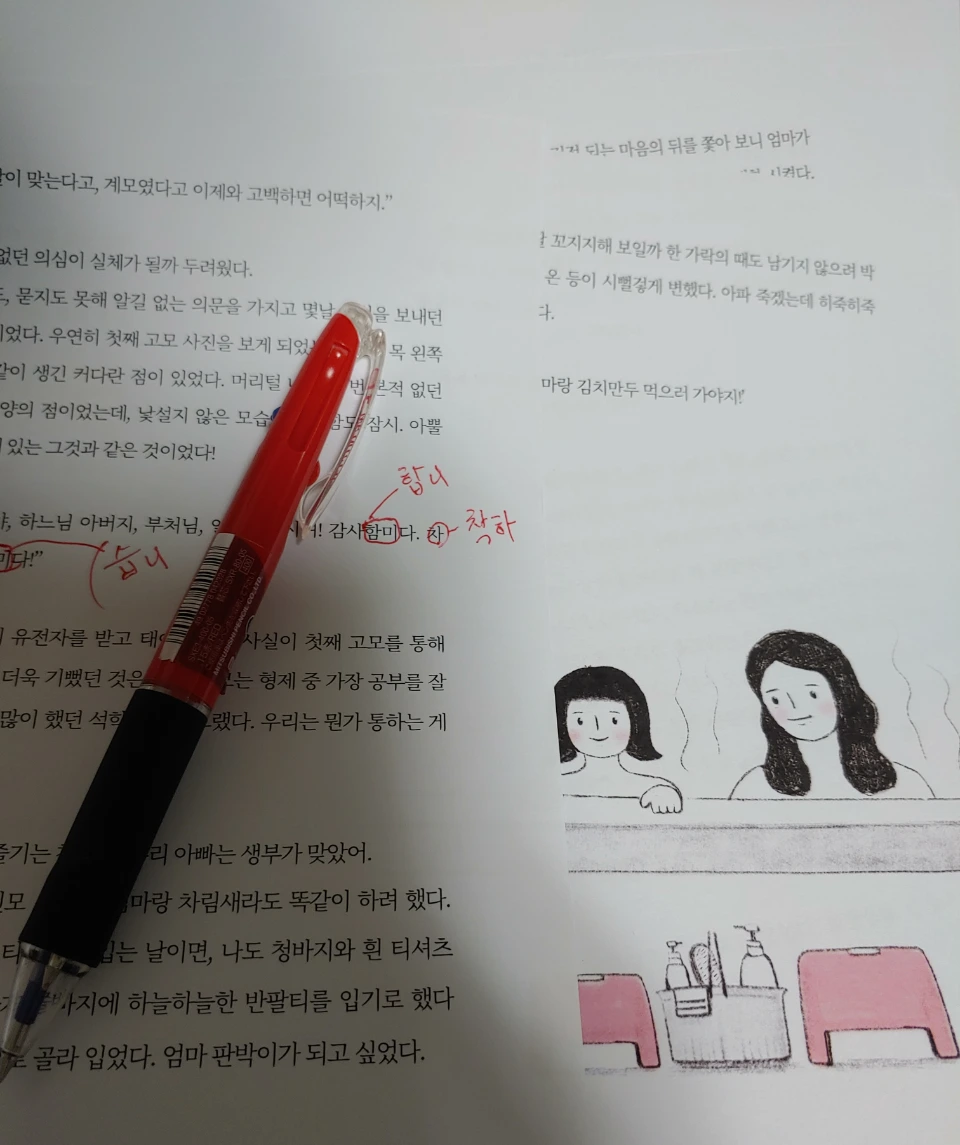 맞는다고, 계모였다고 이제와 고백하면 어떡하지.”
없던 의심이 실체가 될까 두려웠다.
묻지도 못해 알길 없는 의문을 가지고 몇날 을 보내던
이었다. 우연히 첫째 고모 사진을 보게 되었 목 왼쪽
같이 생긴 커다란 점이 있었다. 머리털 번 본적 없던
양의 점이었는데, 낯설지 않은 모습 함도 잠시. 아뿔
있는 그것과 같은 것이었다!
합니
하느님 아버지, 부처님, 감사함미다. 차
착하
미다!”
습니
유전자를 받고 태어 사실이 첫째 고모를 통해
더욱 기뻤던 것은 는 형제 중 가장 공부를 잘
많이 했던 석학 랬다. 우리는 뭔가 통하는 게
즐기는 우리 아빠는 생부가 맞았어.
엄마랑 차림새라도 똑같이 하려 했다.
입는 날이면, 나도 청바지와 흰 티셔츠
바지에 하늘하늘한 반팔티를 입기로 했다
골라 입었다. 엄마 판박이가 되고 싶었다.
되는 마음의 뒤를 쫓아 보니 엄마가
시켜다.
꼬지지해 보일까 한 가락의 때도 남기지 않으려 박
온 등이 시뻘겋게 변했다. 아파 죽겠는데 히죽히죽
다.
마랑 김치만두 먹으러 가야지!’
MITSUBISHI PENCIL CO.,LTD.